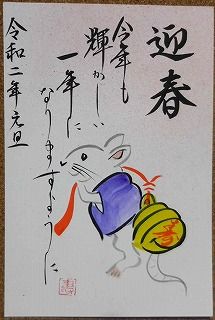 迎春
今年も
輝かしい
一年に
なりますように
令和二年元旦
寿